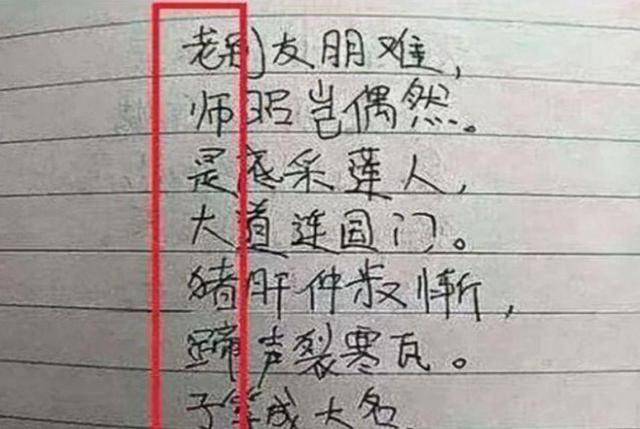 老别友朋难，
师昭岂偶然。
是底采莲人，
大道连国门。
猪肝仲叔惭，
蹄声裂寒瓦。
子等成大名，